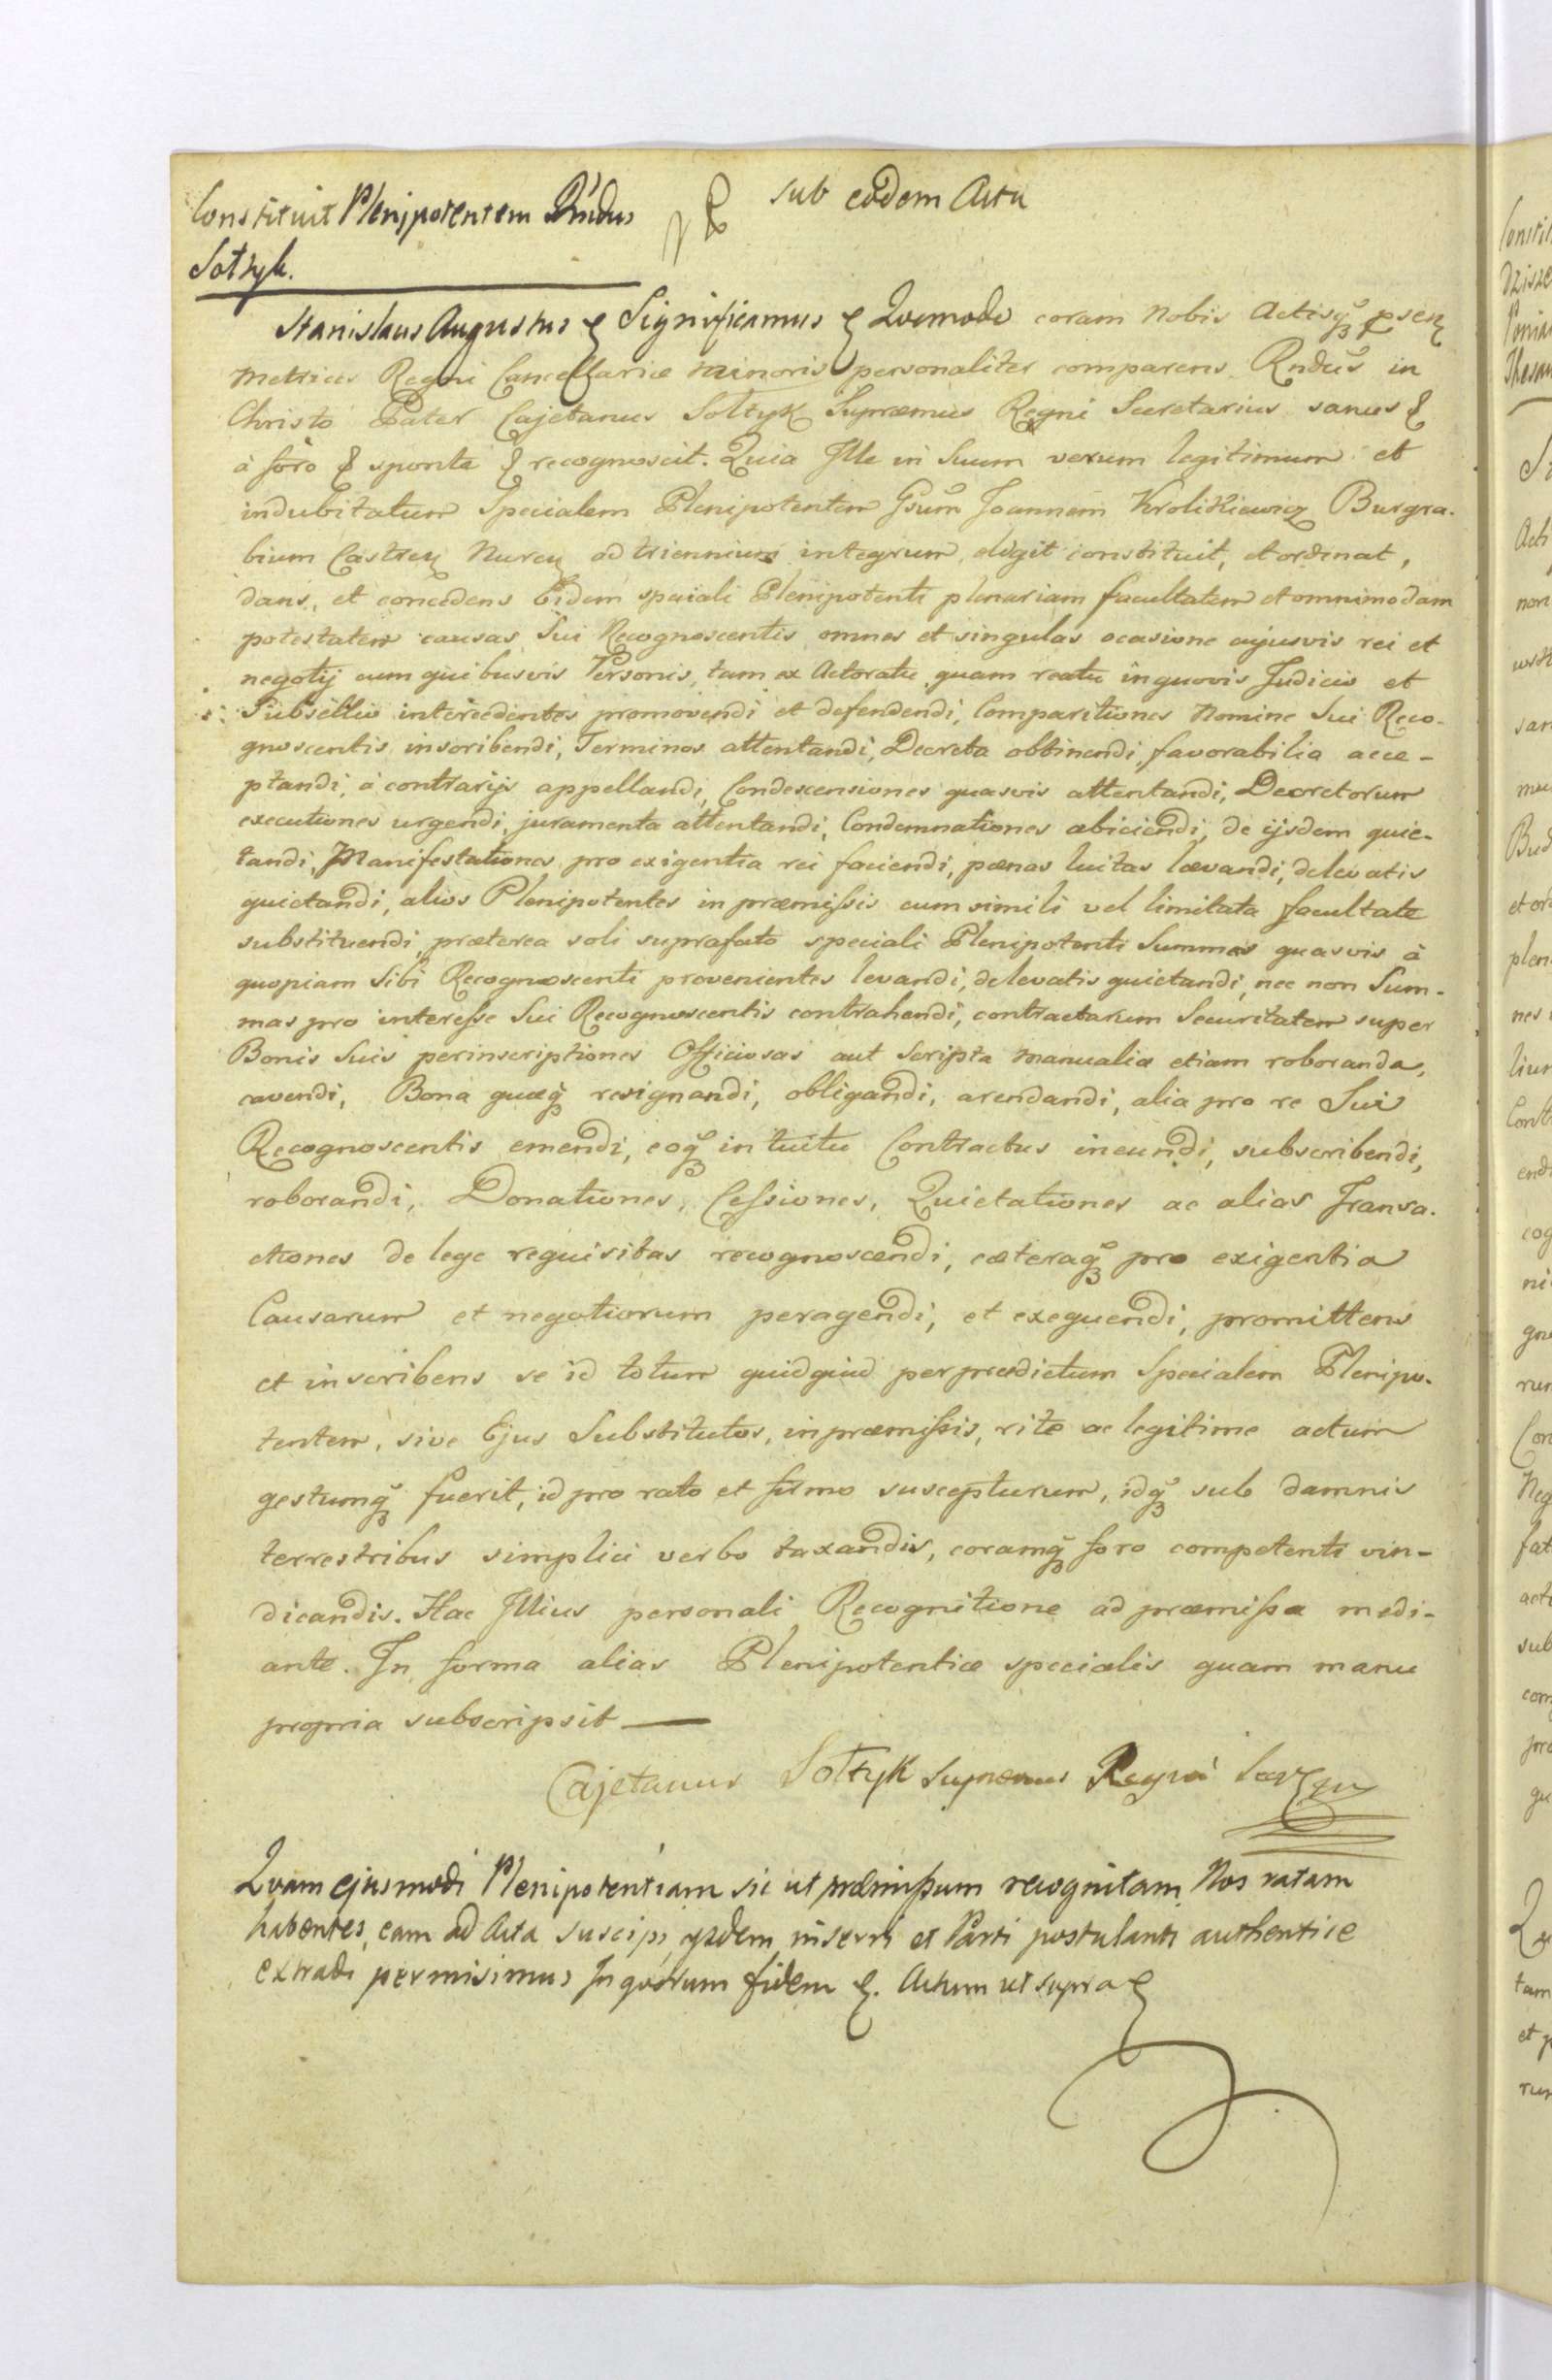 Constituit Plenipotentem Rndus
Sołtyk.
sub eodem Actu
Stanislaus Augustus Significamus Quomodo coram Nobis Actisq psen
Metrices Regni Cancellariæ Minoris personaliter comparens Rndus in
Christo Pater Cajetanus Sołtyk Supræmus Regni Secretarius sanus &
à foro & sponte & recognoscit. Quia Ille in Suum verum legitimum et
indubitatum Specialem Plenipotentem Gsum Joannem Krolikiewicz Burgra-
bium Castren Nuren ad triennium integrum eligit constituit, et ordinat,
dans, et concedens Eidem speciali Plenipotenti plenariam facultatem et omnimodam
potestatem causas Sui Recognoscentis omnes et singulas ocasione cujusvis rei et
negotij cum quibusvis Personis, tam ex Actoratu quam reatu in quovis Judicio et
Subsellio intercedentes promovendi et defendendi, Comparitiones Nomine Sui Reco-
gnoscentis inscribendi, Terminos attentandi, Decreta obtinendi, favorabilia acce-
ptandi, à contrarijs appellandi, Condescensiones quasvis attentandi, Decretorum
executiones urgendi, juramenta attentandi, Condemnationes abiciendi, de ijsdem quie-
tandi, Manifestationes pro exigentia rei faciendi, pœnas luitas lævandi, de levatis
quietandi, alios Plenipotentes in præmissis cum simili vel limitata facultate
substituendi, præterea soli suprafato speciali Plenipotenti Summas quasvis à
quopiam Sibi Recognoscenti provenientes levandi, de levatis quietandi, nec non Sum-
mas pro interesse Sui Recognoscentis contrahendi, contractarum Securitatem super
Bonis Suis per inscriptiones Officiosas aut Scripta manualia etiam roboranda,
cavendi, Bona quæq resignandi, obligandi, arendandi, alia pro re Sui
Recognoscentis emendi, eoq intuitu Contractus ineundi, subscribendi,
roborandi, Donationes, Cessiones, Quietationes ac alias Transa-
ctiones de lege requisitas recognoscendi, cæteraq pro exigentia
Causarum et negotiorum peragendi, et exequendi, promittens
et inscribens se id totum quidquid per prædictum Specialem Plenipo-
tentem, sive Ejus Substitutos, in præmissis, rite ac legitime actum
gestumq fuerit, id pro rato et firmo suscepturum, idq sub damnis
terrestribus simplici verbo taxandis, coramq foro competenti vin-
dicandis. Hac Illius personali Recognitione ad præmissa medi-
ante. In forma alias Plenipotentiæ specialis quam manu
propria subscripsit
Cajetanus Sołtyk Supremus Regni
Quam ejusmodi Plenipotentiam sic ut præmissum recognitam Nos ratam
habentes, eam ad Acta suscipi, ijsdem inserri et Parti postulanti authentice
extradi permisimus In quorum fidem. Actum ut supra